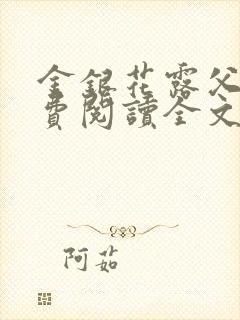 金銀花露父
費閱讀全文
阿茹